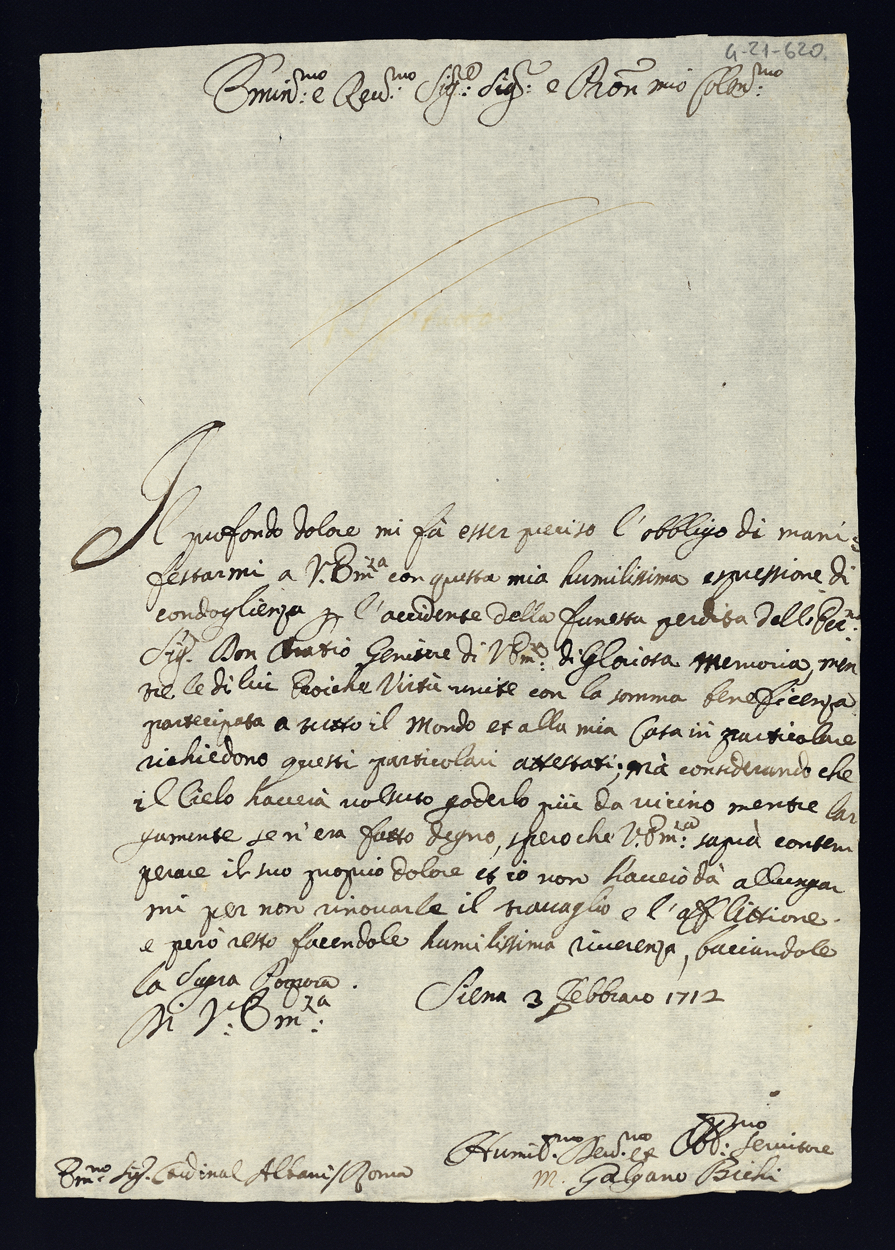 4-21-620.
Emin.mo: e Rev.mo: Sig.re: Sig.r: e Pron mio Colen.mo:
Il profondo dolore mi fà esser preciso l'obbligo di mani:
festarmi a V. Em.za con questa mia humilissima espressione di
condoglienza p l'accidente della funesta perdita dell'Ecc.mo:
Sig. Don Oratio Genitore di V Em.za: di Gloriosa Memoria, men
tre le di lui Eroiche Virtù unite con la somma beneficenza
partecipata a tutto il Mondo et alla mia Casa in particolare
richiedono questi particolari attestati; mà considerando che
il Cielo haverà voluto goderlo più da vicino mentre lar
gamente se n'era fatto degno, spero che V. Em.za: saprà contem
perare il suo proprio dolore et io non haverò dà allungar
mi per non rinovarle il travaglio e l'afflittione.
e però resto facendole humilissima riverenza, baciandole
la Sagra Porpora.
Di V: Em.za:
Siena 3 Febbraro 1712
Humil.mo Dev.mo et Obb.mo: Servitore
Em.mo Sig. Cardinal Albani / Roma
M. Galgano Bichi